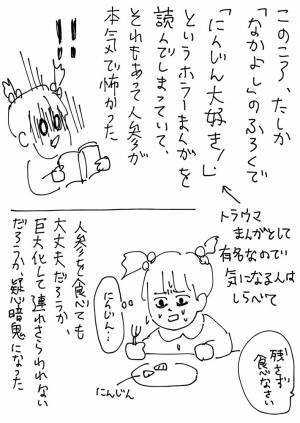 このころ、たしか
「なかよし」のふろくで
「にんじん大好き!」
というホラーまんがを
読んでしまっていて、
それもあって人参が
本気で怖かった
!!
トラウマ
まんがとして
有名なので
気になる人は
しらべて
残さず
食べなさい
にんじん…
にんじん
人参を食べても
大丈夫だろうか、
巨大化して連れさらわれない
だろうか、疑心暗鬼になった